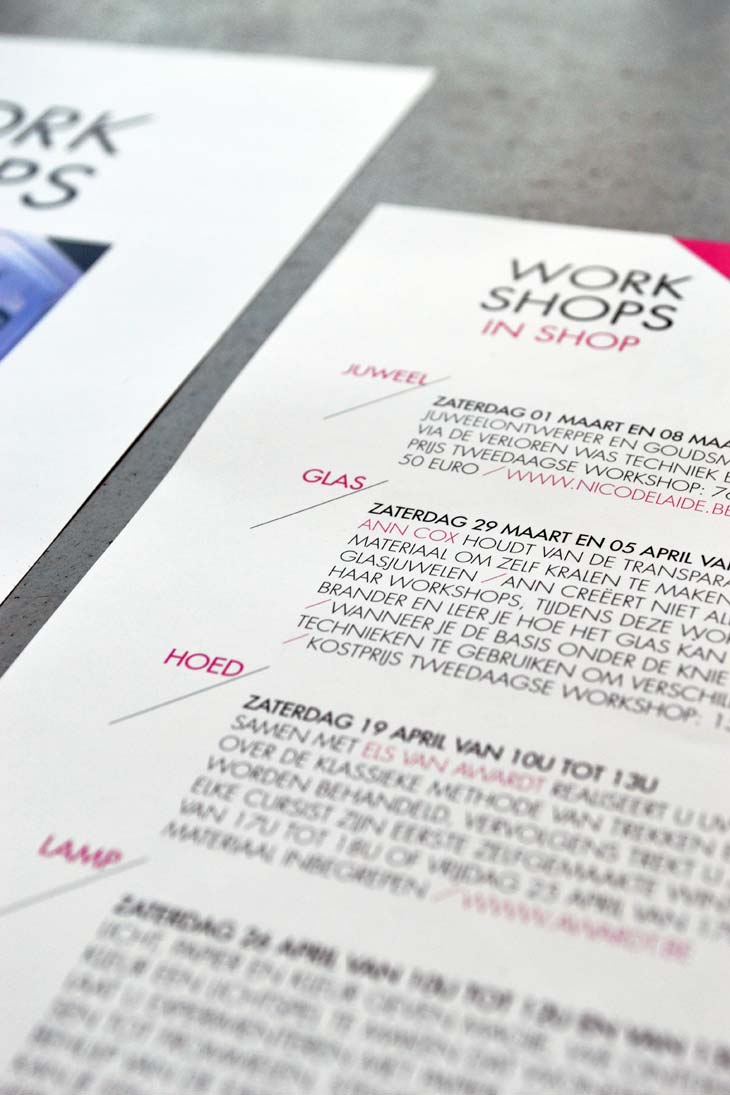 ORK
OPS
WORK
SHOPS
IN SHOP
JUWEEL
ZATERDAG 01 MAART EN 08 MAA
JUWEELONTWERPER EN GOUDSM
VIA DE VERLOREN WAS TECHNIEK E
PRIJS TWEEDAAGSE WORKSHOP: 76
50 EURO / WWW.NICODELAIDE.BE
GLAS
ZATERDAG 29 MAART EN 05 APRIL VAN
ANN COX HOUDT VAN DE TRANSPARA
MATERIAAL OM ZELF KRALEN TE MAKEN
GLASJUWELEN / ANN CREËERT NIET ALL
HAAR WORKSHOPS, TIJDENS DEZE WOR
BRANDER EN LEER JE HOE HET GLAS KAN
/ WANNEER JE DE BASIS ONDER DE KNIE
TECHNIEKEN TE GEBRUIKEN OM VERSCHIL
/ KOSTPRIJS TWEEDAAGSE WORKSHOP: 13
HOED
ZATERDAG 19 APRIL VAN 10U TOT 13U
SAMEN MET ELS VAN AWARDT REALISEERT U UW
OVER DE KLASSIEKE METHODE VAN TREKKEN E
WORDEN BEHANDELD. VERVOLGENS TREKT U
ELKE CURSIST ZIJN EERSTE ZELFGEMAAKTE
VAN 17U TOT 18U OF VRIJDAG 25 APRIL VAN 17U
MATERIAAL INBEGREPEN / WWW.AWARDT.BE
LAMP
ZATERDAG 26 APRIL VAN 10U TOT 13U EN VAN
LICHT, PAPIER EN KLEUR
KLEUR EEN LICHTSPEL TE
LAAT U EXPERIMENTEREN MET PAPIER